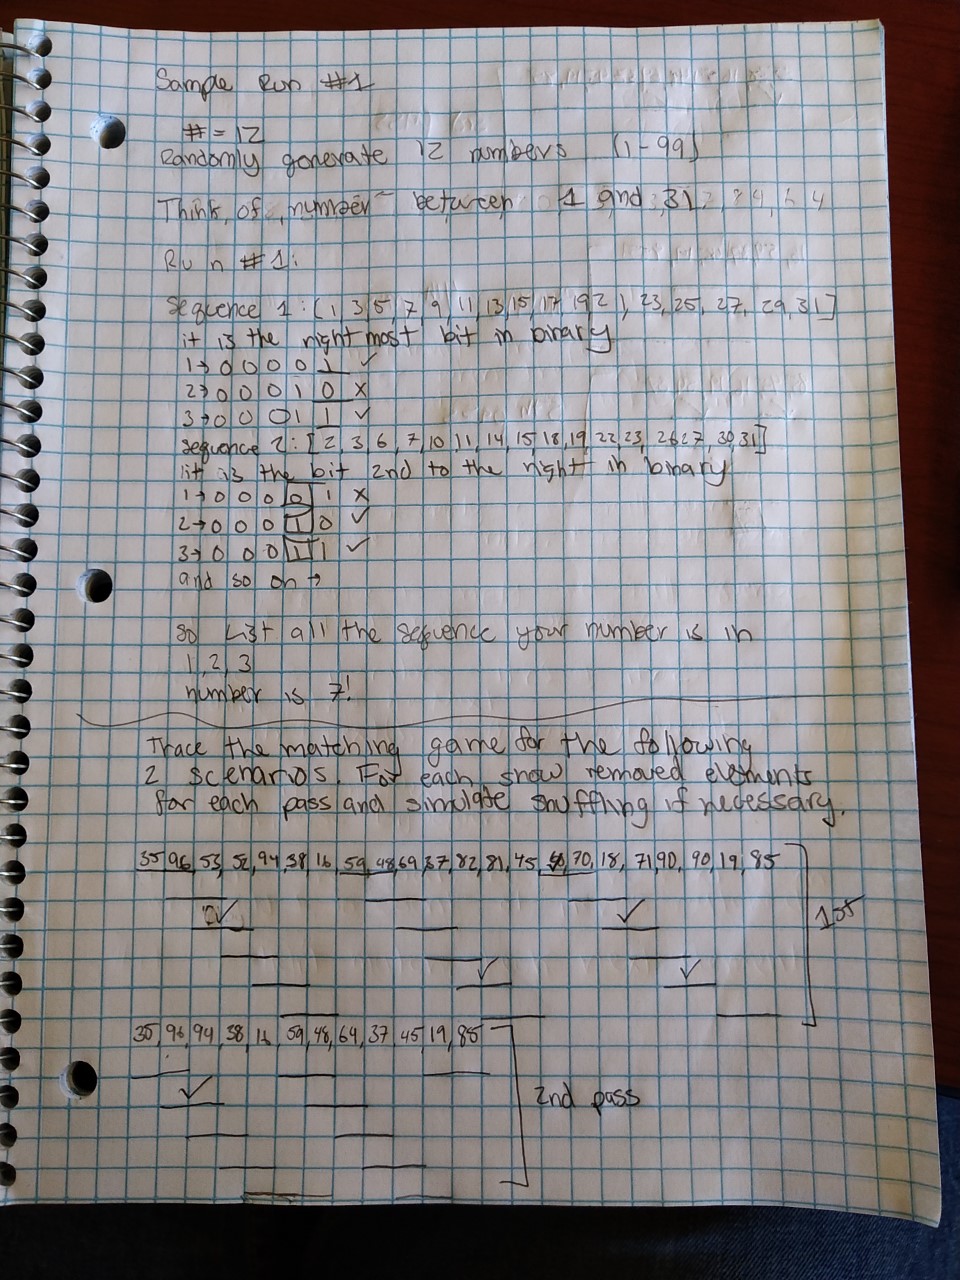 Sample Run #1
# = 12
Randomly generate 12 numbers (1-99)
Think of number between 1 and 31
Run #1:
Sequence 1: [1, 3, 5, 7, 9, 11, 13, 15, 17, 19, 21, 23, 25, 27, 29, 31]
it is the right most bit in binary
1→ 0 0 0 0 1 ✓
2→ 0 0 0 1 0 X
3→ 0 0 0 1 1 ✓
Sequence 2: [2, 3, 6, 7, 10, 11, 14, 15, 18, 19, 22, 23, 26, 27, 30, 31]
it is the bit 2nd to the right in binary
1→ 0 0 0 0 1 X
2→ 0 0 0 1 0 ✓
3→ 0 0 0 1 1 ✓
and so on →
so List all the sequence your number is in
1, 2, 3
number is 7!
Trace the matching game for the following
2 scenarios. For each show removed elements
for each pass and simulate shuffling if necessary.
35, 96, 53, 52, 94, 38, 16, 59, 48, 69, 37, 82, 81, 45, 70, 18, 71, 90, 90, 19, 85
✓ ✓ 1st
✓ ✓
35, 96, 94, 38, 16, 59, 48, 64, 37, 45, 19, 85
✓ 2nd pass